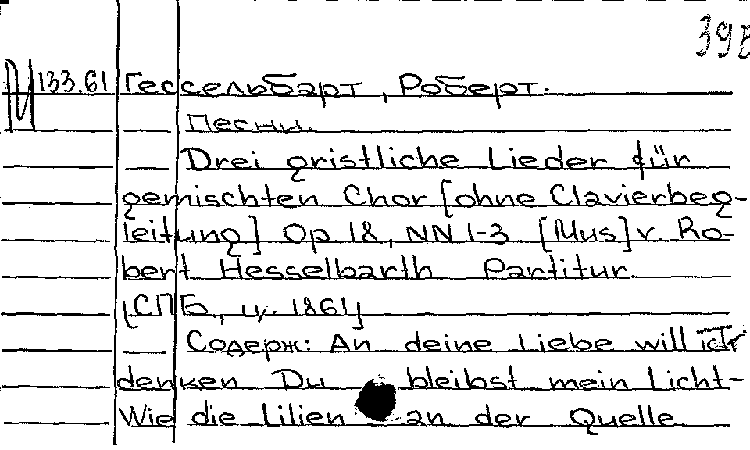 39
М 133.61 Гессельбарт, Роберт.
Песни.
— Drei gristliche Lieder für
gemischten Chor [ohne Clavierbeg-
leitung] Op 18, NN 1-3 [Mus] v Ro-
bert Hesselbarth Partitur.
[СПБ., ц. 1861]
— Содерж: An deine Liebe will ich
denken Du bleibst mein Licht-
Wie die Lilien an der Quelle